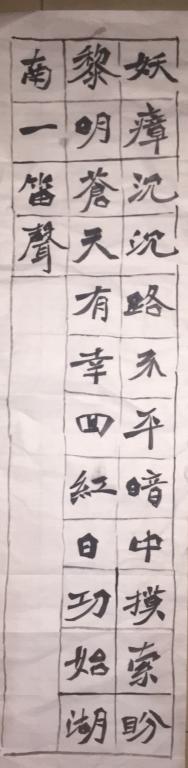 妖瘴沉沉路不平暗中摸索盼
黎明蒼天有幸四紅日功始湖
南一笛聲